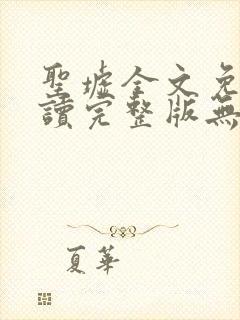 聖墟全文免
讀完整版無
夏華